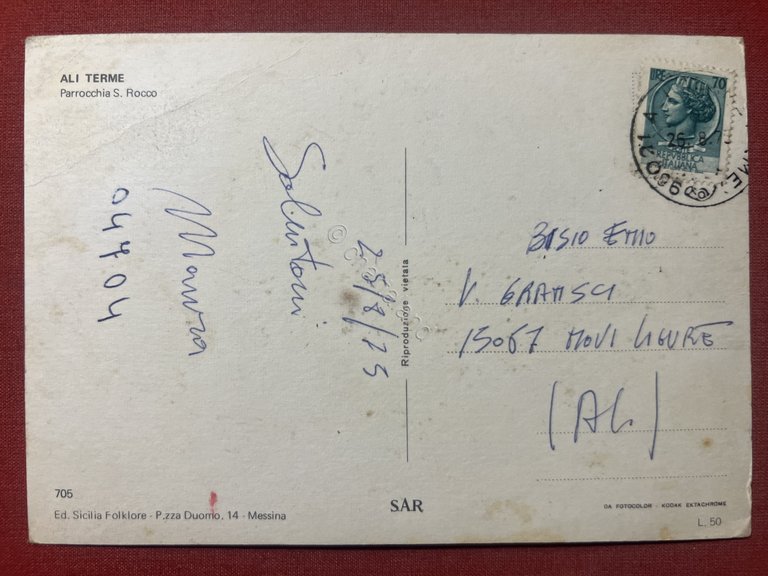 ALI TERME
Parrocchia S. Rocco
Salutoni
Maura
04704
25/8/75
Riproduzione vietata
LIRE 70
REPUBBLICA
ITALIANA
26-8
BASIO EZIO
V. GRAMSCI
15067 NOVI LIGURE
(AL)
705
Ed. Sicilia Folklore - P.zza Duomo, 14 - Messina
SAR
DA FOTOCOLOR - KODAK EKTACHROME
L. 50